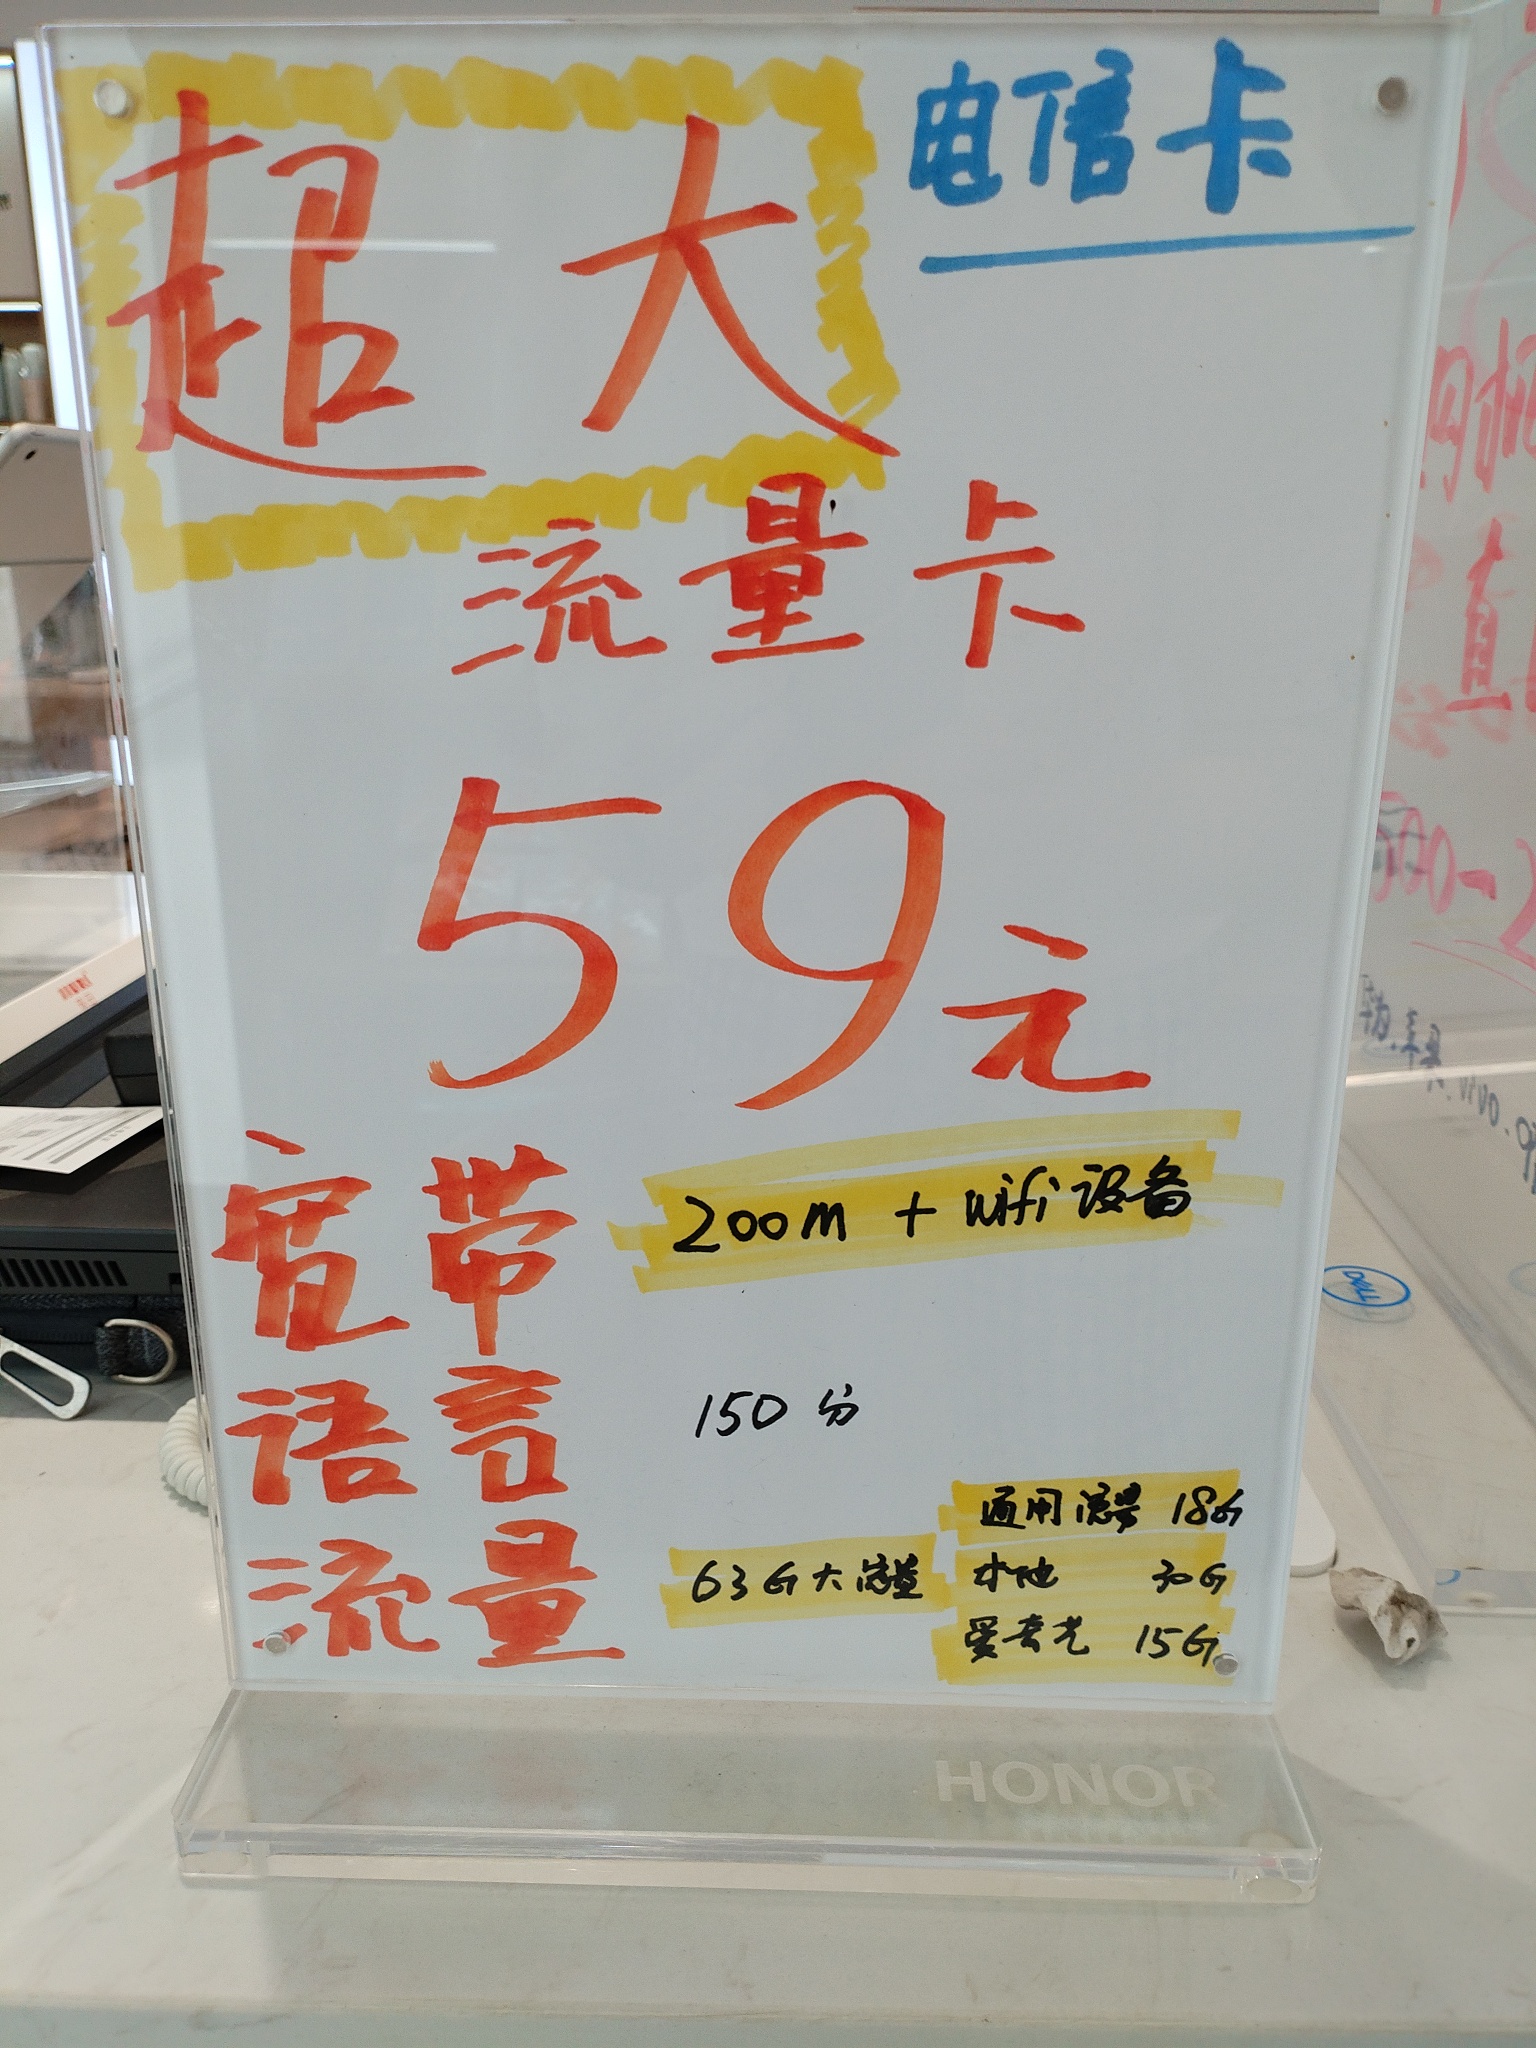 超大
电信卡
流量卡
59元
宽带 200M + wifi设备
语音 150分
流量 63G大流量
通用流量 18G
本地 30G
爱奇艺 15G
HONOR
DELL